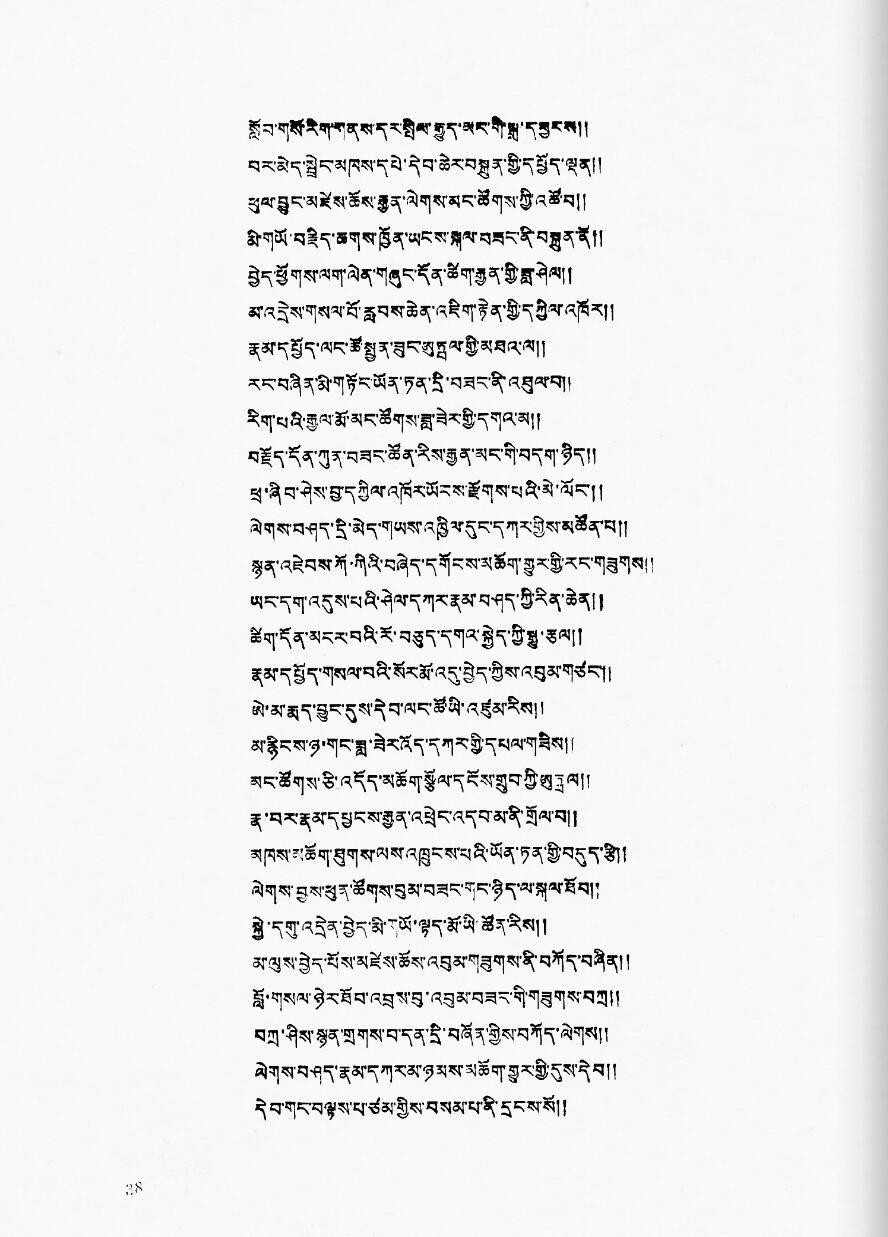 སློབ་གསོ་རིག་གནས་དར་སྤེལ་རྒྱུད་མང་གི་སྒྲ་དབྱངས།།
བར་མེད་སྤྲེང་མཁས་དཔེ་དེབ་ཆེར་བསྐྲུན་གྱི་དཔྱོད་ལྡན།།
ཕུལ་བྱུང་མཛེས་ཆོས་རྒྱན་ལེགས་མང་ཚོགས་ཀྱི་འཚོ་བ།།
མི་གཡོ་བརྗིད་ཆགས་ཁྱོན་ཡངས་སྐལ་བཟང་ནི་བསྐྲུན་ནོ།།
བྱེད་ཕྱོགས་ལག་ལེན་གཞུང་དོན་ཚིག་རྒྱན་གྱི་ཟླ་ཤེལ།།
མ་འདྲེས་གསལ་པོ་རླབས་ཆེན་འཇིག་རྟེན་གྱི་དཀྱིལ་འཁོར།།
རྣམ་དཔྱོད་ལང་ཚོ་སྤྱན་ཟུང་ཨུཏྤལ་གྱི་མཐའ་ལ།།
རང་བཞིན་མི་གཏོང་ཡོན་ཏན་དྲི་བཟང་ནི་འཐུལ་བ།
རིག་པའི་རྒྱལ་མོ་མང་ཚོགས་ཟླ་ཟེར་གྱི་དགའ་མ།།
བརྗོད་དོན་ཀུན་བཟང་ཚོན་རིས་རྒྱན་མང་གི་བདག་ཉིད།།
ཕྲ་ཞིབ་ཤེས་བྱ་དཀྱིལ་འཁོར་ཡོངས་རྫོགས་པའི་མེ་ལོང་།།
ལེགས་བཤད་དྲི་མེད་གཡས་འཁྱིལ་དུང་དཀར་གྱིས་མཚོན་བ།།
སྙན་འཇེབས་ཀོ་ཀིའི་བཞེད་དགོངས་མཆོག་གྱུར་གྱི་རང་གཟུགས།།
ཡང་དག་འདུས་པའི་ཤེལ་དཀར་རྣམ་བཤད་ཀྱི་རིན་ཆེན།།
ཚིག་དོན་མངར་བའི་རོ་བཅུད་དགའ་སྐྱེད་ཀྱི་སྒྱུ་རྩལ།།
རྣམ་དཔྱོད་གསལ་བའི་སོར་མོ་འདུ་བྱེད་ཀྱིས་འབུམ་གཙང་།།
ཨེ་མ་རྨད་བྱུང་དུས་དེབ་ལང་ཚོ་ཡི་འཛུམ་རིས།།
མ་རྙིངས་ཉ་གང་ཟླ་ཟེར་འོད་དཀར་གྱི་དཔལ་གཟིས།།
མང་ཚོགས་ཅི་འདོད་མཆོག་སྩོལ་དངོས་གྲུབ་ཀྱི་ཨུཏྤལ།།
རྣ་བར་རྣམ་དཔྱངས་རྒྱན་འཕྲེང་འདབ་མ་ནི་གྲོལ་བ།།
མཁས་མཆོག་ཐུགས་ལས་འཁྲུངས་པའི་ཡོན་ཏན་གྱི་བདུད་རྩི།།
ལེགས་བྱས་ཕུན་ཚོགས་བུམ་བཟང་གང་ཉིད་ལ་སྐལ་ཐོབ།།
སྐྱེ་དགུ་འདྲེན་བྱེད་མི་གཡོ་ལྟད་མོ་ཡི་ཚོན་རིས།།
མ་ལུས་བྱེད་པོས་མཛེས་ཆོས་འབུམ་གཟུགས་ནི་བཀོད་བཞིན།།
བློ་གསལ་ཉེར་ཐོབ་འབྲས་བུ་འབུམ་བཟང་གི་གཟུགས་བཀྲ།།
བཀྲ་ཤིས་སྙན་གྲགས་བ་དན་དྲི་བཞོན་གྱིས་བཀོད་ལེགས།།
ལེགས་བཤད་རྣམ་དཀར་མ་ཉམས་མཆོག་གྱུར་གྱི་དུས་དེབ།།
དེབ་གང་བལྟས་པ་ཙམ་གྱིས་བསམ་པ་ནི་དྲངས་སོ།།
38